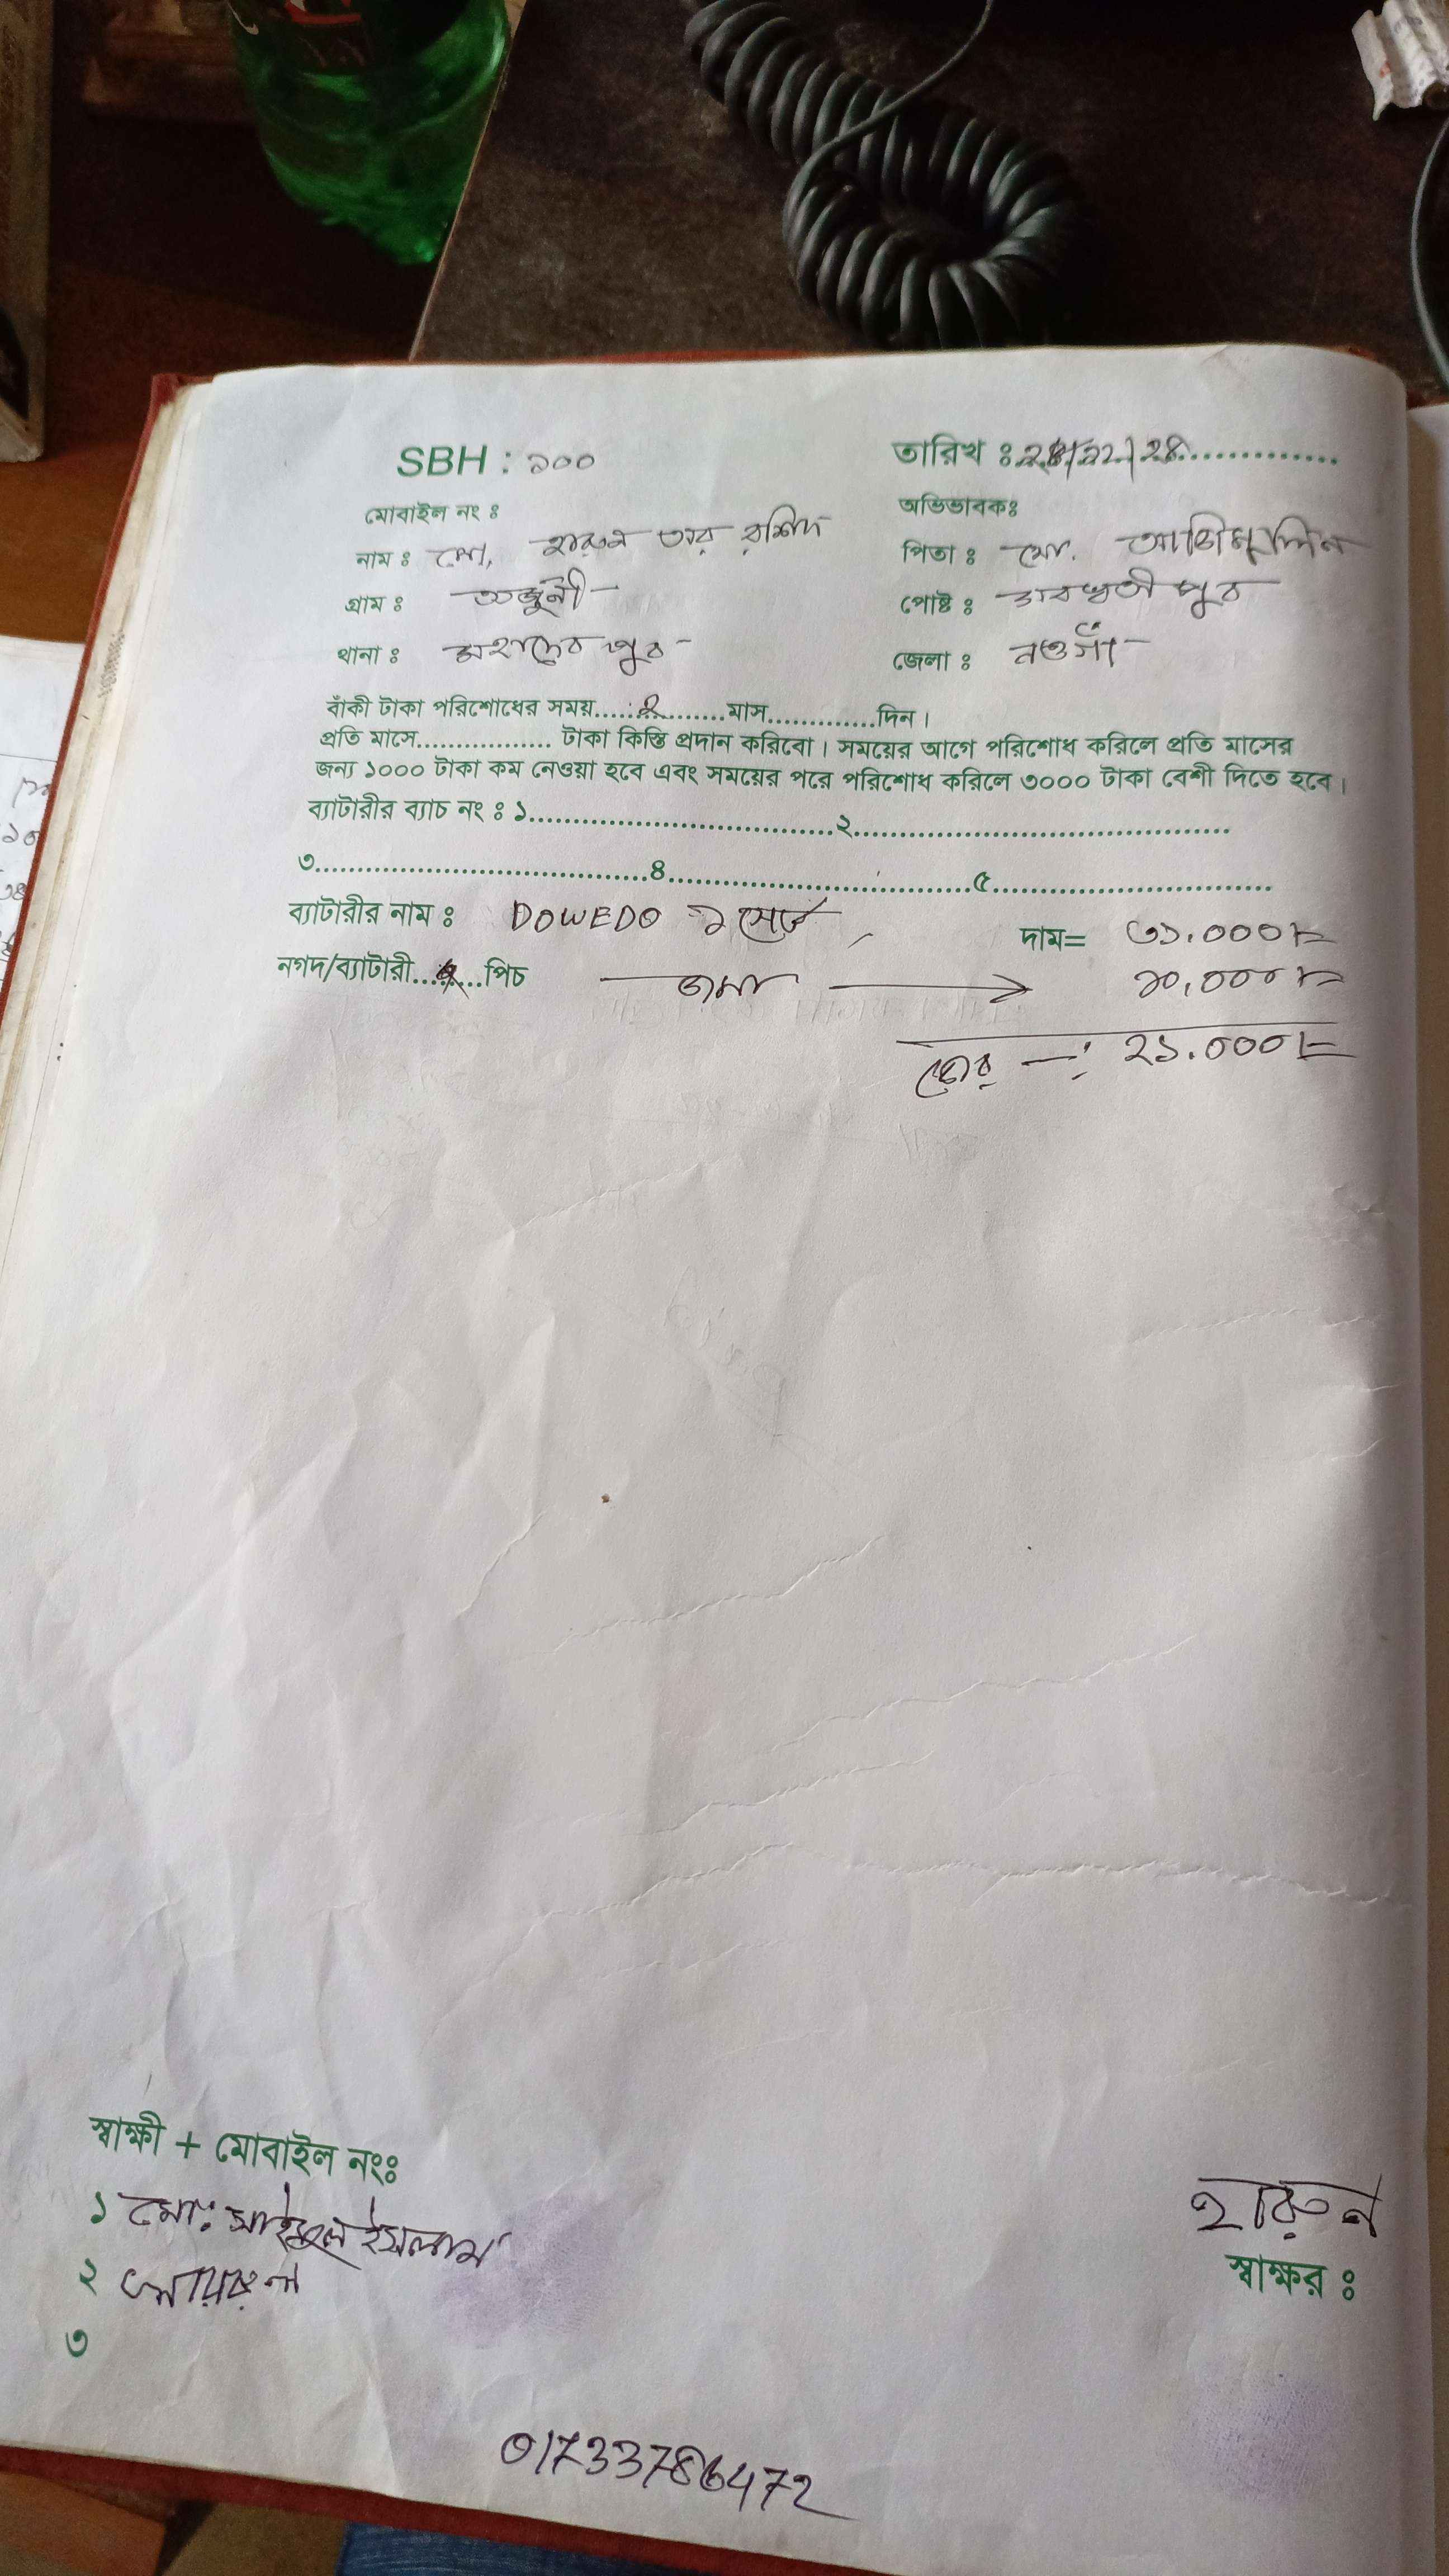 SBH : ১০০
তারিখ ঃ
মোবাইল নং ঃ
অভিভাবকঃ
নাম ঃ মো. হারুন অর রশিদ
পিতা ঃ মো.
গ্রাম ঃ অর্জুনী
পোষ্ট ঃ
থানা ঃ মহাদেব পুর
জেলা ঃ নওগাঁ
বাঁকী টাকা পরিশোধের সময়......২.........মাস.............দিন।
প্রতি মাসে................. টাকা কিস্তি প্রদান করিবো। সময়ের আগে পরিশোধ করিলে প্রতি মাসের
জন্য ১০০০ টাকা কম নেওয়া হবে এবং সময়ের পরে পরিশোধ করিলে ৩০০০ টাকা বেশী দিতে হবে।
ব্যাটারীর ব্যাচ নং ঃ ১.....................................২..........................................
৩.....................................৪..................................৫...............................
ব্যাটারীর নাম ঃ DOWEDO ১ সেট
দাম= ৩১.০০০৳=
নগদ/ব্যাটারী........পিচ জমা → ১০,০০০৳=
জের —: ২১.০০০৳=
স্বাক্ষী + মোবাইল নংঃ
১ মোঃ সাইদুল ইসলাম
২
৩
হারুন
স্বাক্ষর ঃ
01733786472